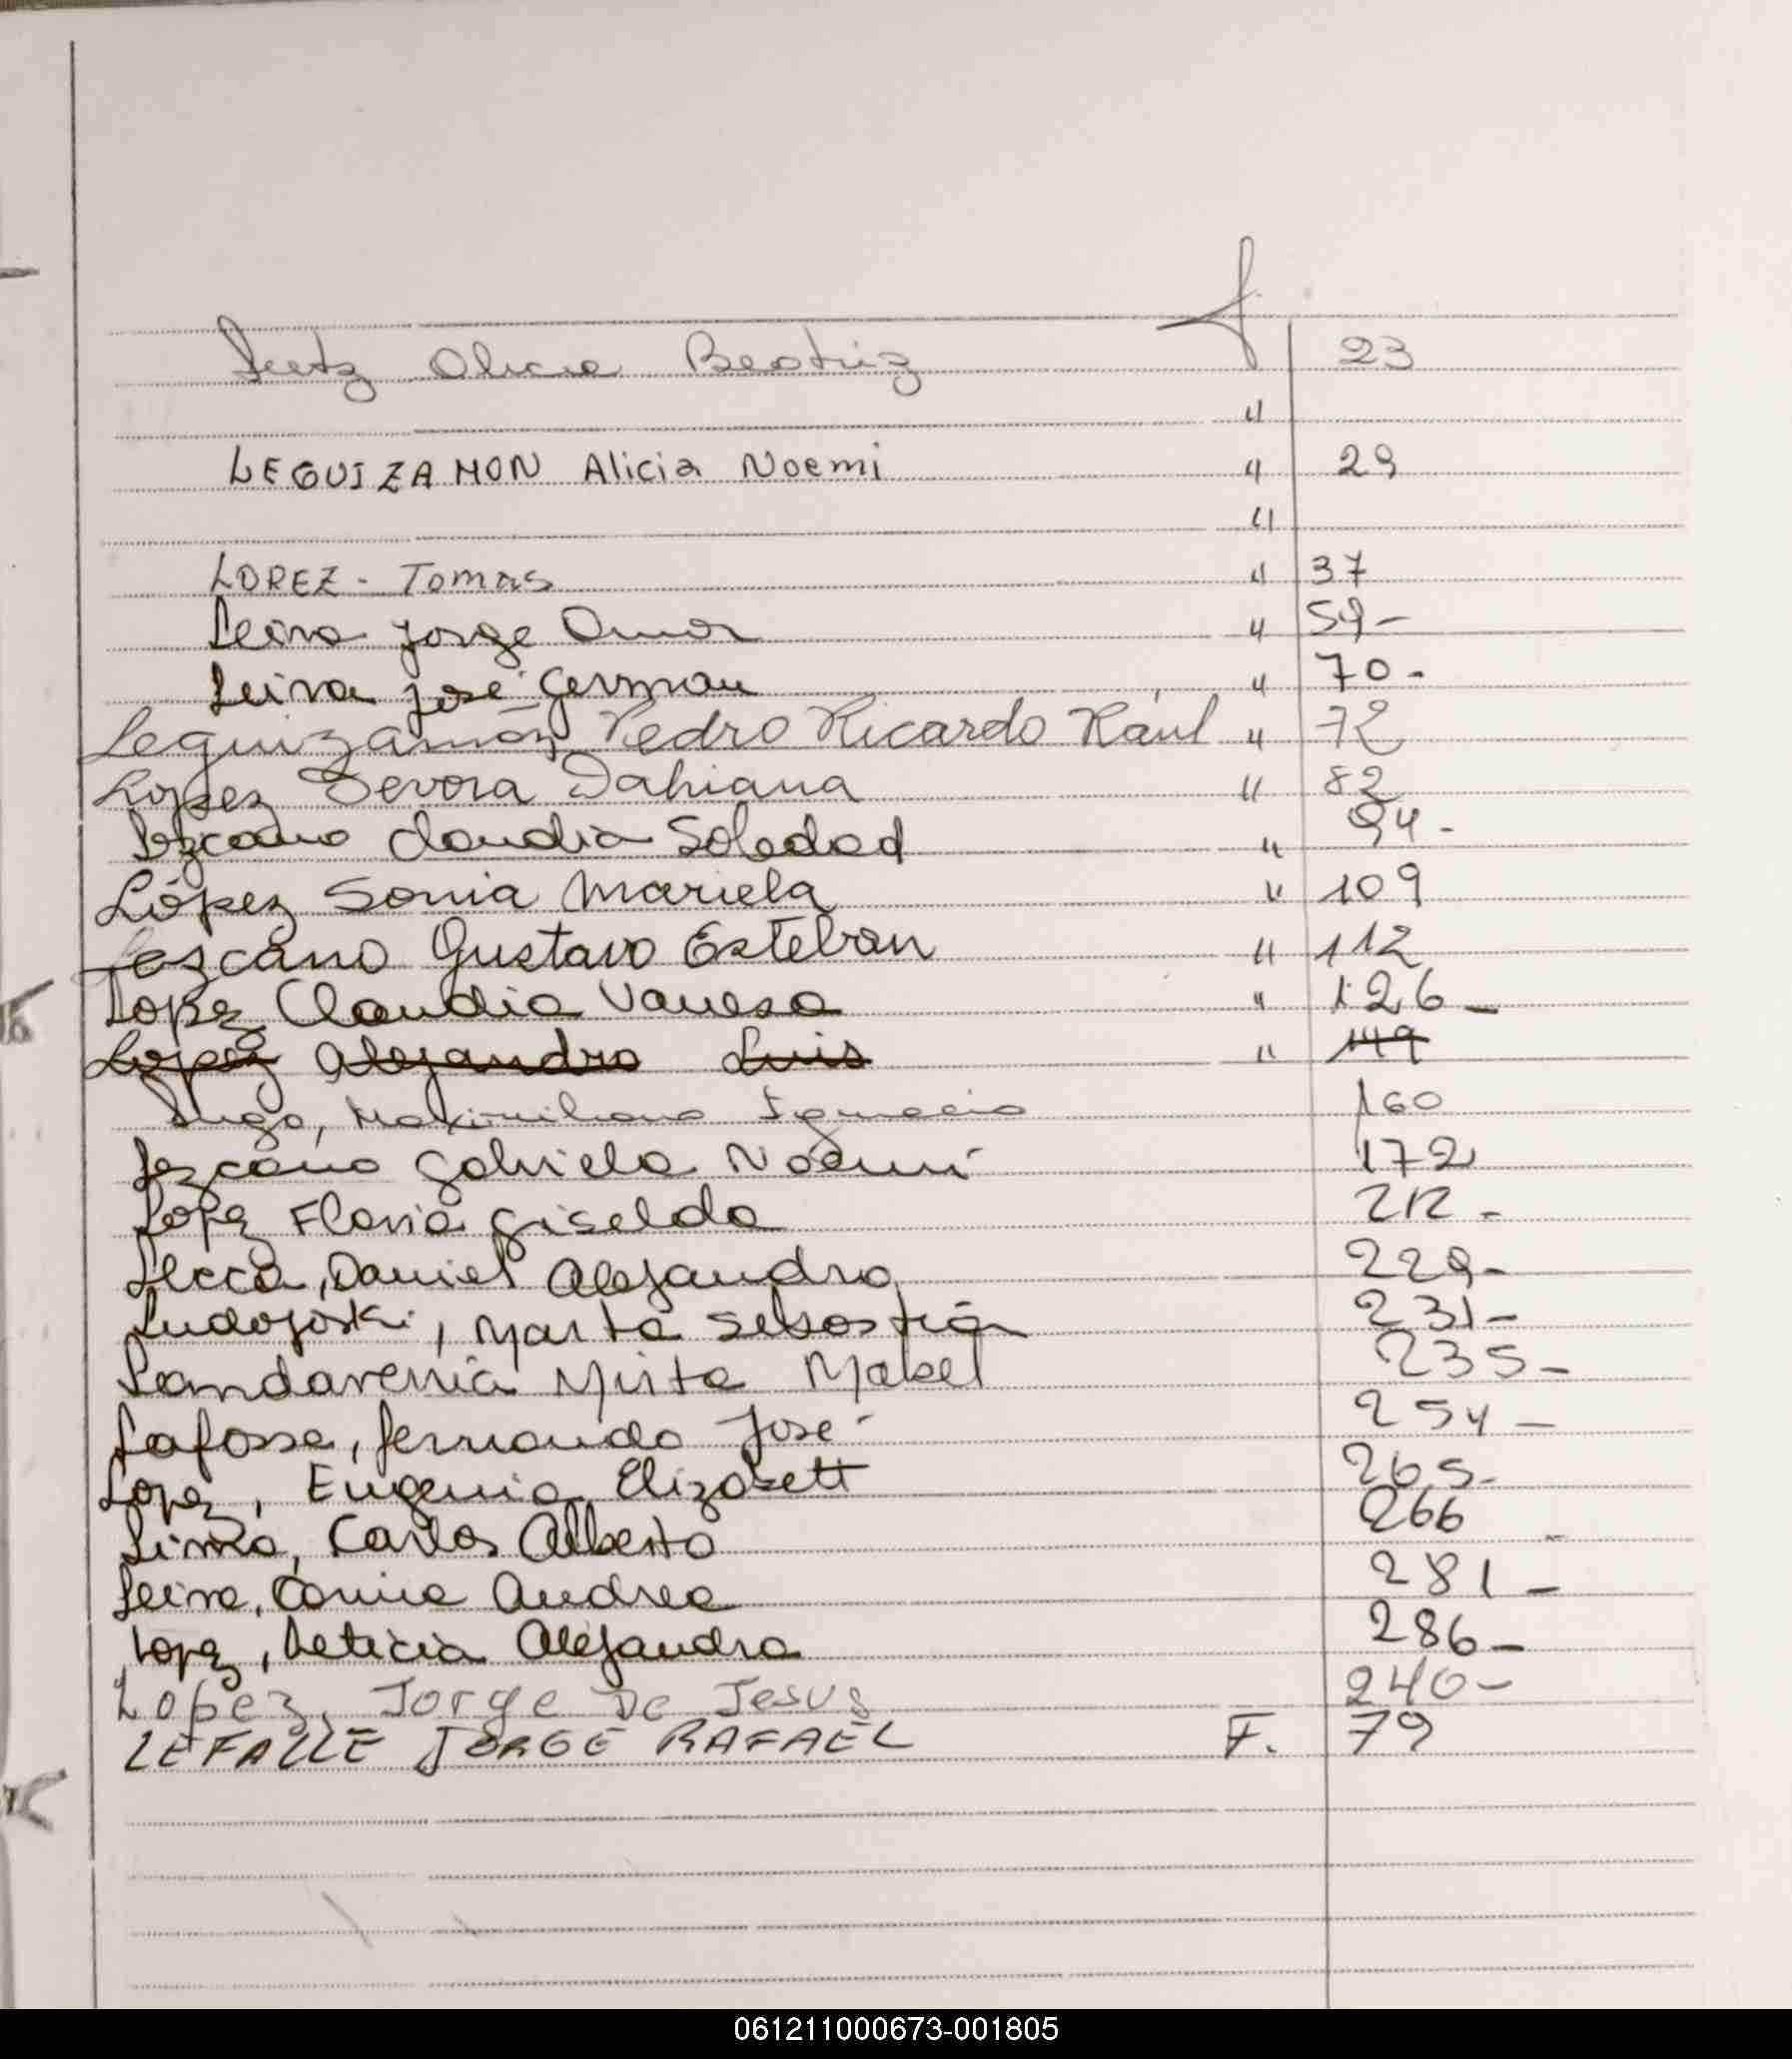 f.
Lutz Alicia Beatriz 23
"
LEGUIZAMON Alicia Noemi " 29
"
LOPEZ - Tomas " 37
Leiva Jorge Omar " 59-
Leiva José German " 70-
Leguizamón Pedro Ricardo Raúl " 72
Lopez Devora Dahiana " 82
Lezcano Claudia Soledad " 94-
López Sonia Mariela " 109
Lezcano Gustavo Esteban " 112
Lopez Claudia Vanesa " 126-
Lopez Alejandro Luis " 149
Lugo, Maximiliano Ignacio 160
Lezcano Gabriela Noemí 172
Lopez Flavia Giselda 212-
Daniel Alejandro 229-
Ludojoski, Marta Sebastiá 231-
Landavenia Mirta Mabel 235-
Lafosse, Fernando José 254-
Lopez, Eugenia Elizabett 265-
Carlos Alberto 266-
Leiva, Andrea 281-
Lopez, Leticia Alejandra 286-
Lopez, Jorge De Jesus 240-
LEFALLE JORGE RAFAEL F. 79
061211000673-001805